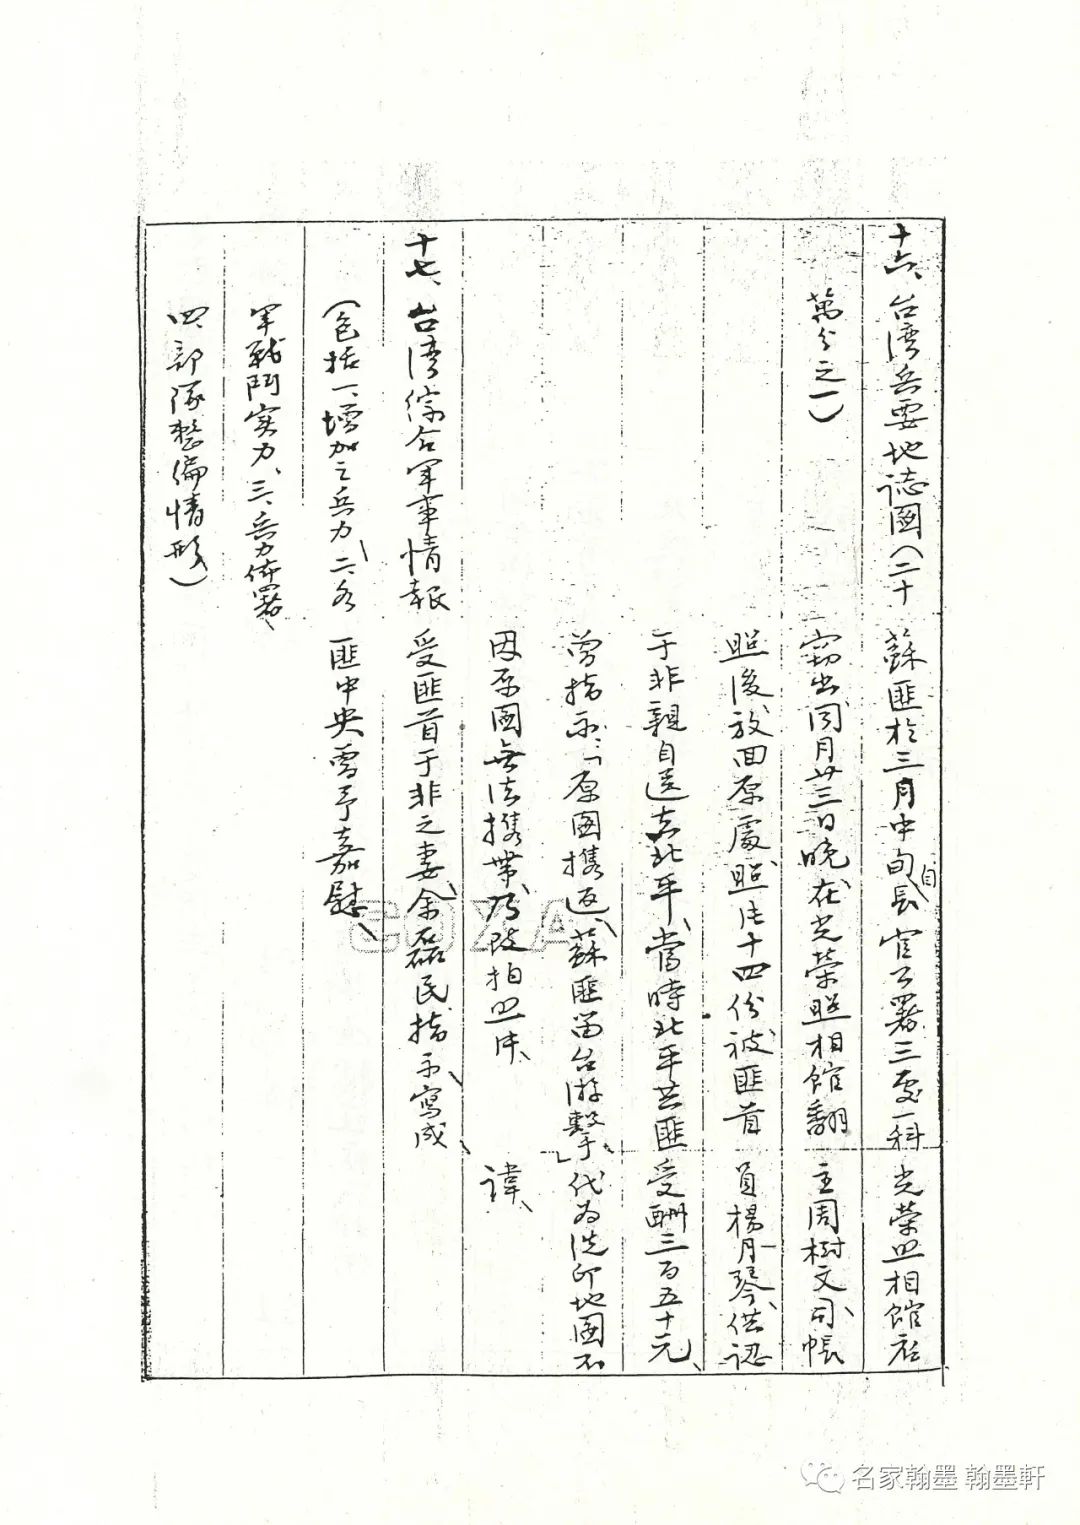 十六、台灣兵要地誌圖（二十
萬分之一）
蘇匪於三月中旬自長官公署三處一科
竊出同月廿三日晚、在光榮照相館翻
照後放回原處照片十四份被匪首
于非親自送去北平、當時北平共匪
曾指示：「原圖攜返、蘇匪留台游擊」、
因原圖無法攜帶乃改拍照片、
光榮照相館店
主周樹文、司帳
員楊月琴、供認
受酬三百五十元、
代为洗印地圖不
諱、
十七、台灣綜合軍事情報
（包括一、增加之兵力、二、各
軍戰鬥实力、三、兵力佈署、
四、部隊整編情形）
受匪首于非之妻、余磊民指示、寫成、
匪中央曾予嘉慰、
名家翰墨 翰墨軒